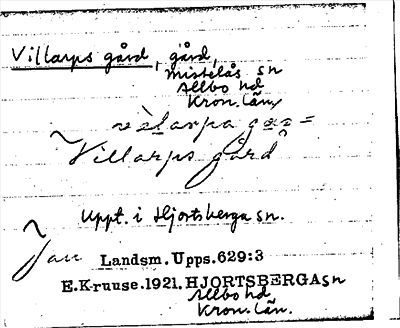 Villarps gård, gård,
Mistelås sn
Allbo hd
Kron. län
Villarps gård
Uppt. i Hjortsberga sn.
Jan
Landsm. Upps. 629:3
E. Kruuse. 1921. HJORTSBERGA sn
Allbo hd.
Kron. län.